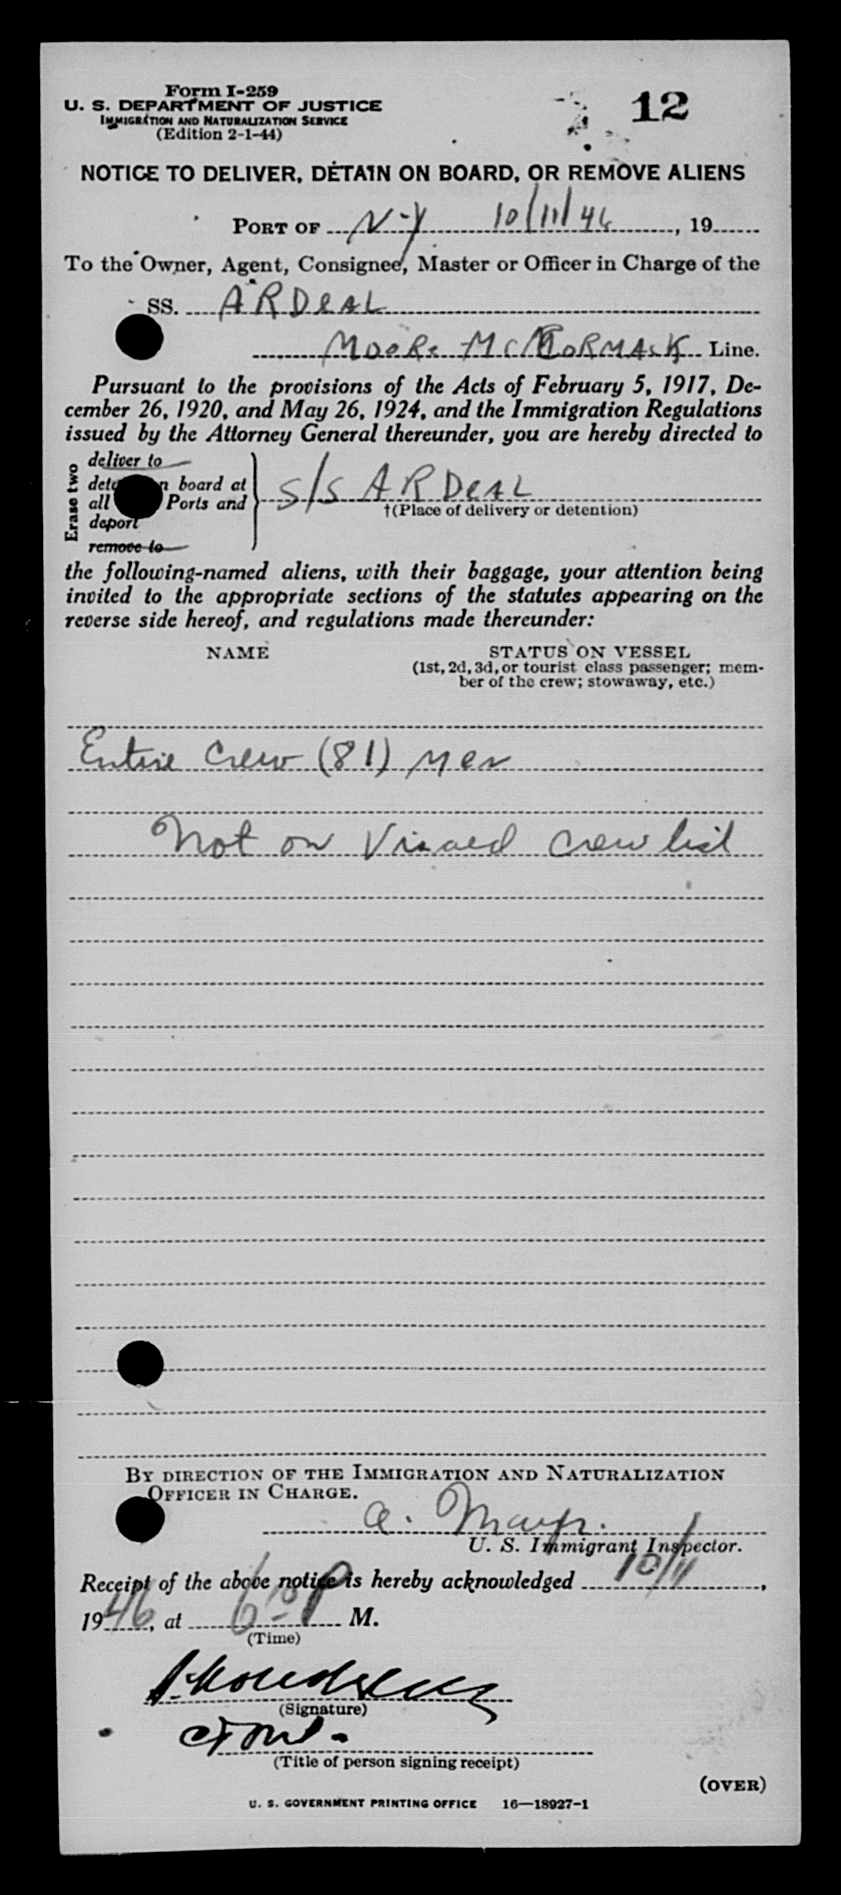 Form I-259
U. S. DEPARTMENT OF JUSTICE
IMMIGRATION AND NATURALIZATION SERVICE
(Edition 2-1-44)
12
NOTICE TO DELIVER, DETAIN ON BOARD, OR REMOVE ALIENS
PORT OF N-Y 10/11/46, 19
To the Owner, Agent, Consignee, Master or Officer in Charge of the
SS. ARDEAL
MOORE McCORMACK Line.
Pursuant to the provisions of the Acts of February 5, 1917, De-
cember 26, 1920, and May 26, 1924, and the Immigration Regulations
issued by the Attorney General thereunder, you are hereby directed to
Erase two
deliver to
board at
all Ports and
deport
remove to
S/S ARDEAL
†(Place of delivery or detention)
the following-named aliens, with their baggage, your attention being
invited to the appropriate sections of the statutes appearing on the
reverse side hereof, and regulations made thereunder:
NAME STATUS ON VESSEL
(1st, 2d, 3d, or tourist class passenger; mem-
ber of the crew; stowaway, etc.)
Entire Crew (81) Men
Not on Visaed Crew list
BY DIRECTION OF THE IMMIGRATION AND NATURALIZATION
OFFICER IN CHARGE.
a.
U. S. Immigrant Inspector.
Receipt of the above notice is hereby acknowledged 10/11,
1946, at 6 P M.
(Time)
(Signature)
(Title of person signing receipt)
(OVER)
U. S. GOVERNMENT PRINTING OFFICE 16—18927-1